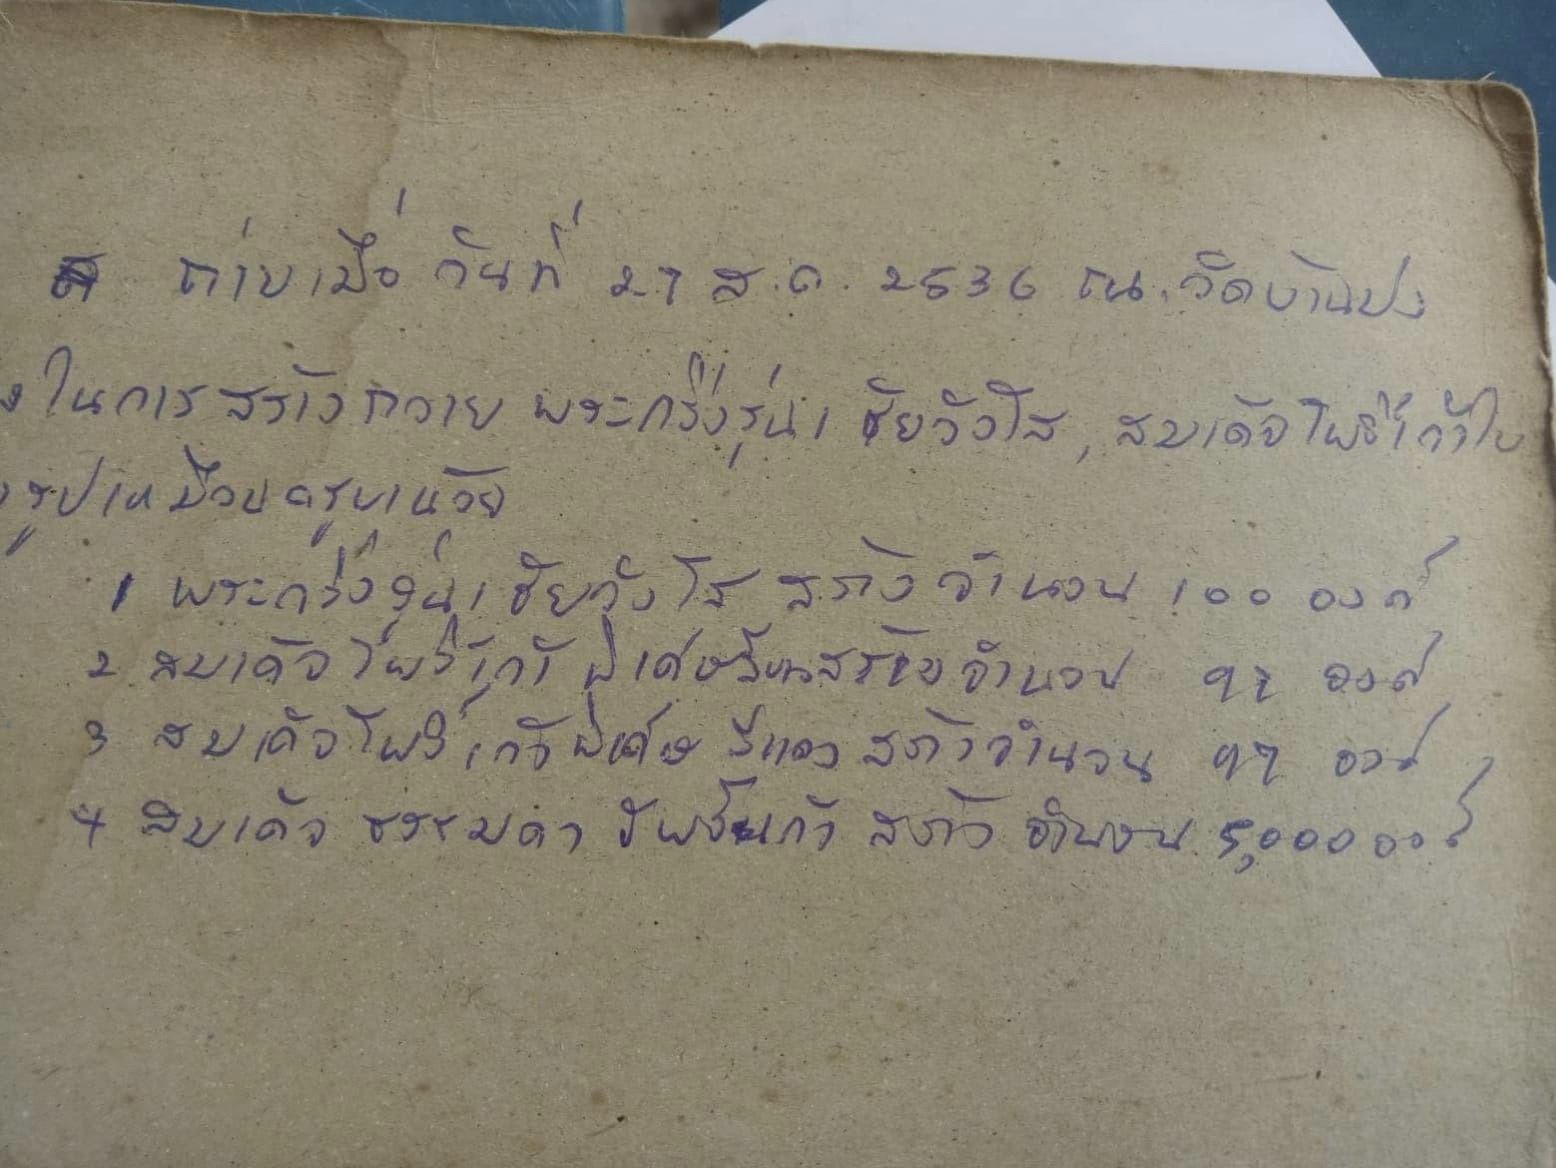 ถ่ายเมื่อ วันที่ 27 ส.ค. 2536 ณ. วัดบ้านปง
ในการสร้างถวาย พระกริ่งรุ่น 1 ชัยวังโส, สมเด็จโพธิ์เก้าใบ
รูปเหมือนครูบาเนวัย
1 พระกริ่งรุ่น 1 ชัยวังโส สร้างจำนวน 100 องค์
2 สมเด็จโพธิ์เก้า พิเศษ สร้างจำนวน 97 องค์
3 สมเด็จโพธิ์เก้าพิเศษ สีแดง สร้างจำนวน 97 องค์
4 สมเด็จ ธรรมดา โพธิ์เก้า สร้าง จำนวน 5,000 องค์